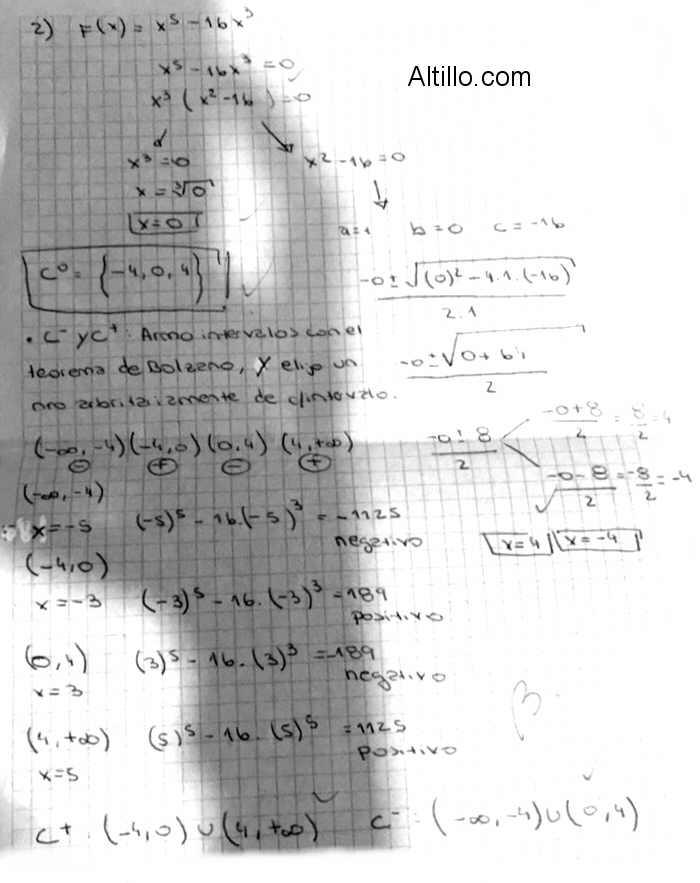 2) F(x) = x⁵ - 16x³
Altillo.com
x⁵ - 16x³ = 0
x³ (x² - 16) = 0
x³ = 0
x = ∛0
x = 0
x² - 16 = 0
a = 1 b = 0 c = -16
-0 ± √(0)² - 4.1.(-16)
2.1
-0 ± √0 + 64
2
-0 ± 8
2
-0 + 8 = 8 = 4
2 2
-0 - 8 = -8 = -4
2 2
x = 4 x = -4
C⁰ = {-4, 0, 4}
• C⁻ y C⁺: Armo intervalos con el
teorema de Bolzano, y elijo un
nro arbitrariamente de c/intervalo.
(-∞, -4) (-4, 0) (0, 4) (4, +∞)
- + - +
(-∞, -4)
x = -5 (-5)⁵ - 16.(-5)³ = -1125
negativo
(-4, 0)
x = -3 (-3)⁵ - 16.(-3)³ = 189
positivo
(0, 4) (3)⁵ - 16.(3)³ = -189
x = 3 negativo
(4, +∞) (5)⁵ - 16.(5)⁵ = 1125
x = 5 positivo
C⁺: (-4, 0) ∪ (4, +∞) C⁻: (-∞, -4) ∪ (0, 4)